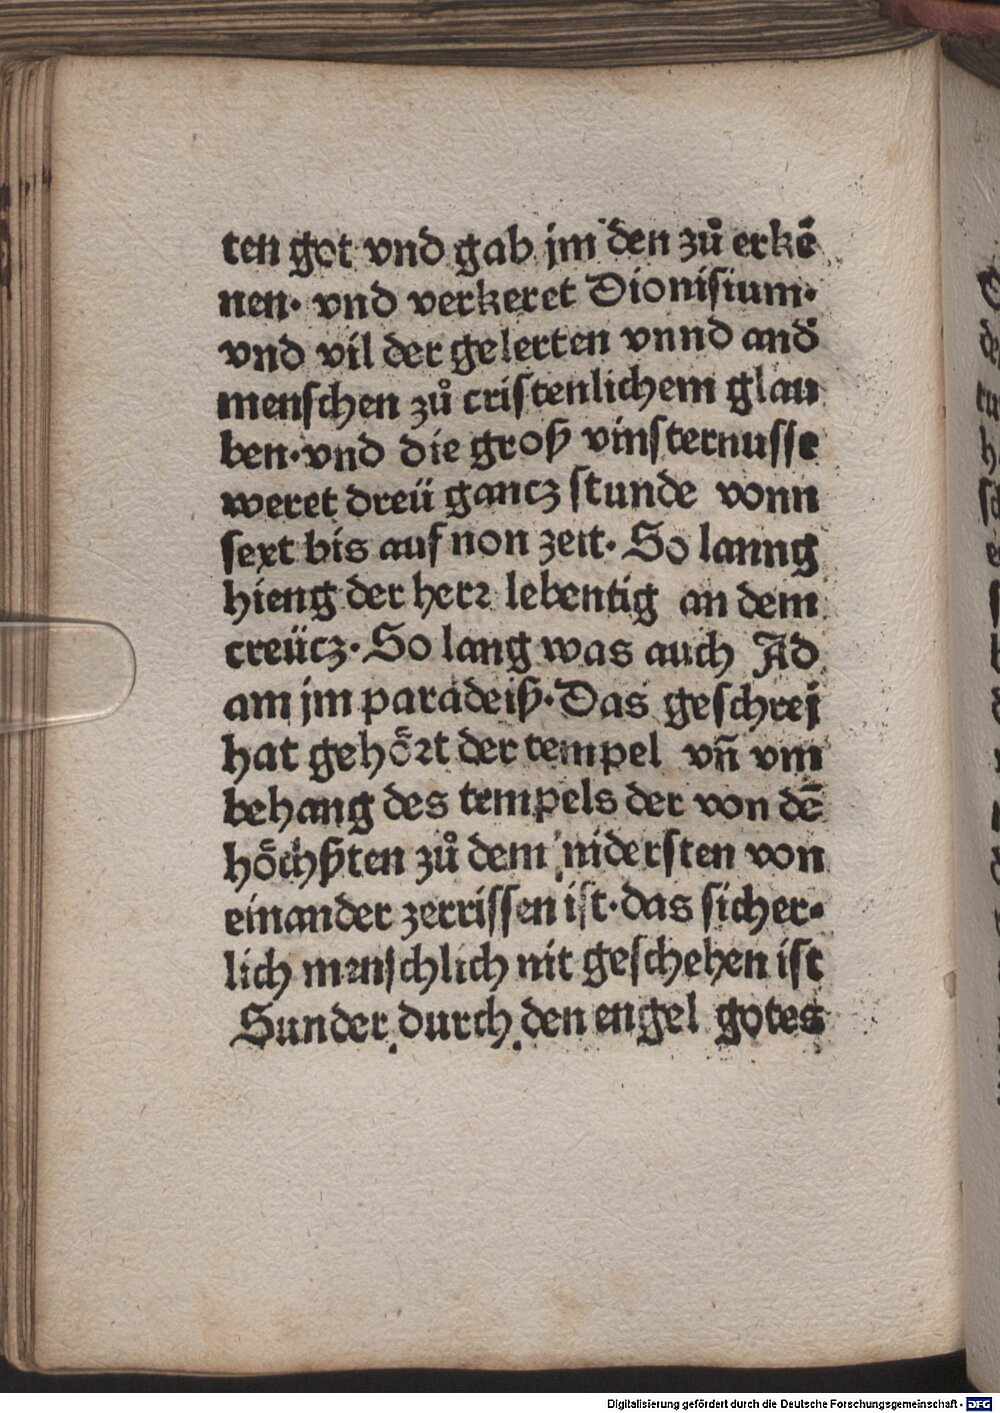 ten got vnd gab jm den zů erkē
nen· vnd verkeret Dionisium·
vnd vil der gelerten vnnd and̾
menschen zů cristenlichem glau
ben·vnd die groß vinsternusse
weret dreü gancz stunde vonn
sext bis auf non zeit· So lanng
hieng der herr lebentig an dem
creücz· So lang was auch Ad
am jm paradeiß·Das geschrej
hat gehöꝛt der tempel vn̄ vm
behang des tempels der von dē
höchßten zů dem nidersten von
einander zerrissen ist·das sicher⸗
lich menschlich nit geschehen ist
Sunder durch den engel gotes
Digitalisierung gefördert durch die Deutsche Forschungsgemeinschaft - DFG